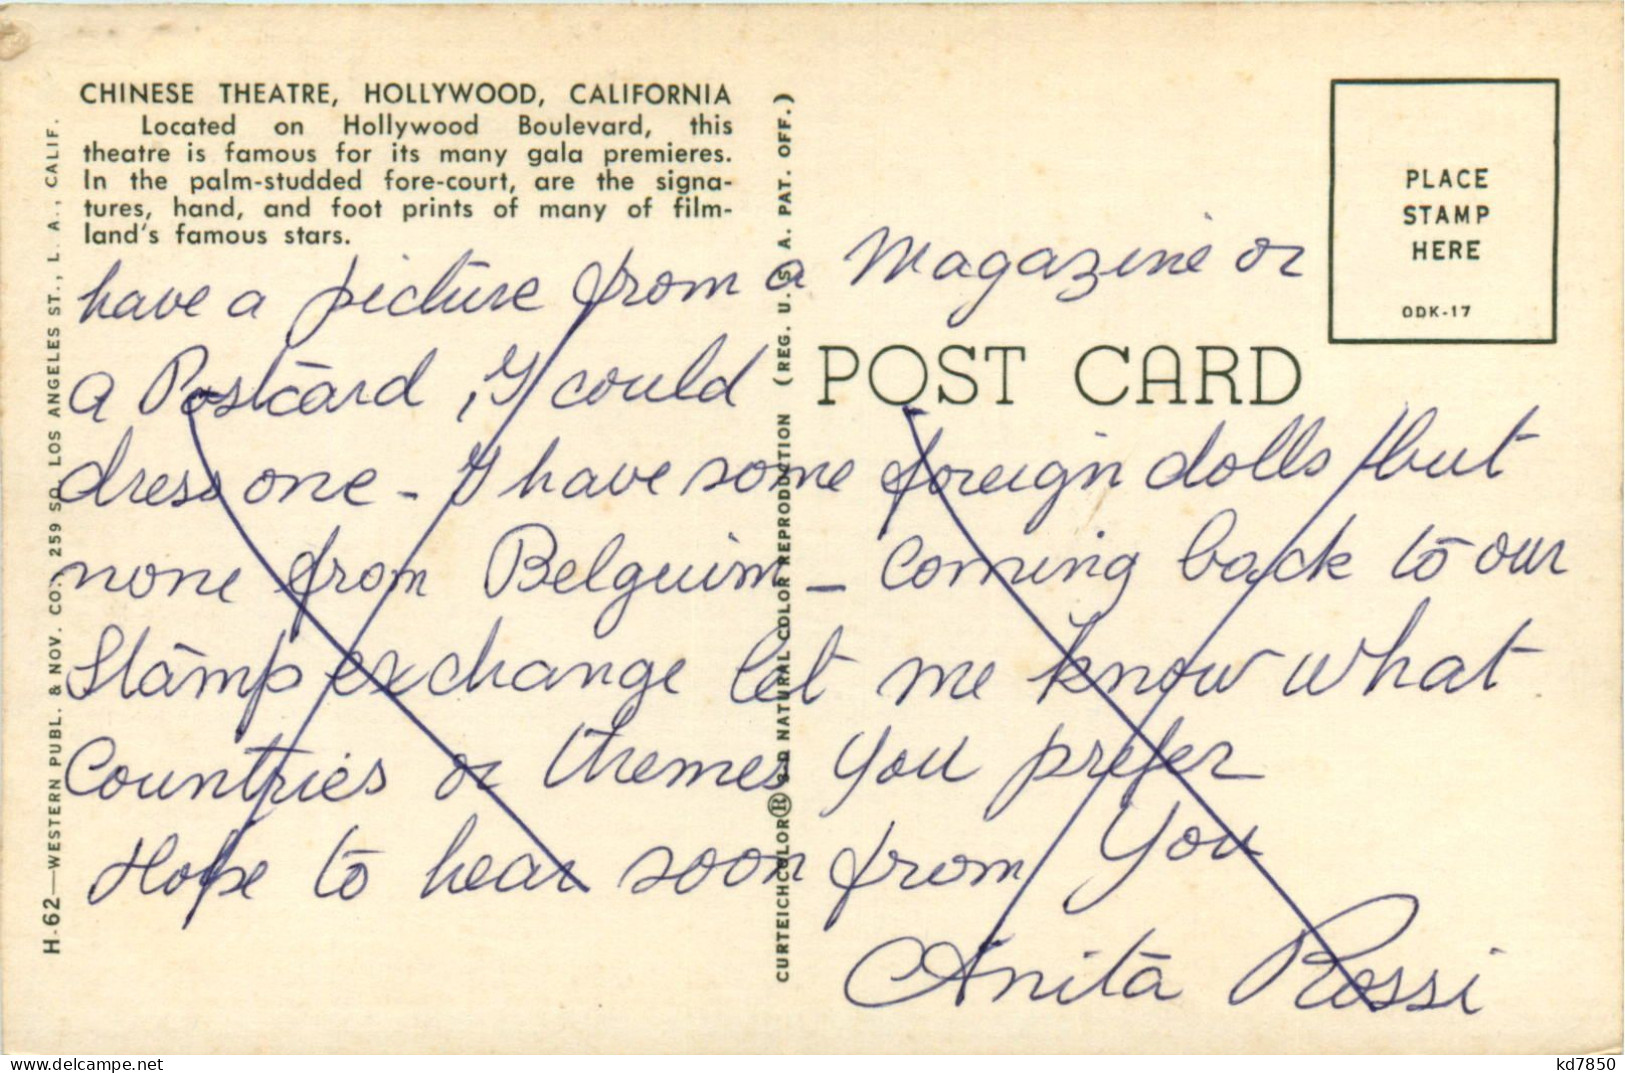 CHINESE THEATRE, HOLLYWOOD, CALIFORNIA
Located on Hollywood Boulevard, this
theatre is famous for its many gala premieres.
In the palm-studded fore-court, are the signa-
tures, hand, and foot prints of many of film-
land's famous stars.
PLACE
STAMP
HERE
ODK-17
POST CARD
have a picture from a Magazine or
a Postcard, I could
dress one - I have some foreign dolls but
none from Belguim - Coming back to our
Stamp exchange let me know what
Countries or themes you prefer
Hope to hear soon from You
Anita Rossi
H-62—WESTERN PUBL. & NOV. CO., 259 SO. LOS ANGELES ST., L. A., CALIF.
CURTEICHCOLOR® 3-D NATURAL COLOR REPRODUCTION (REG. U. S. A. PAT. OFF.)
www.delcampe.net
kd7850